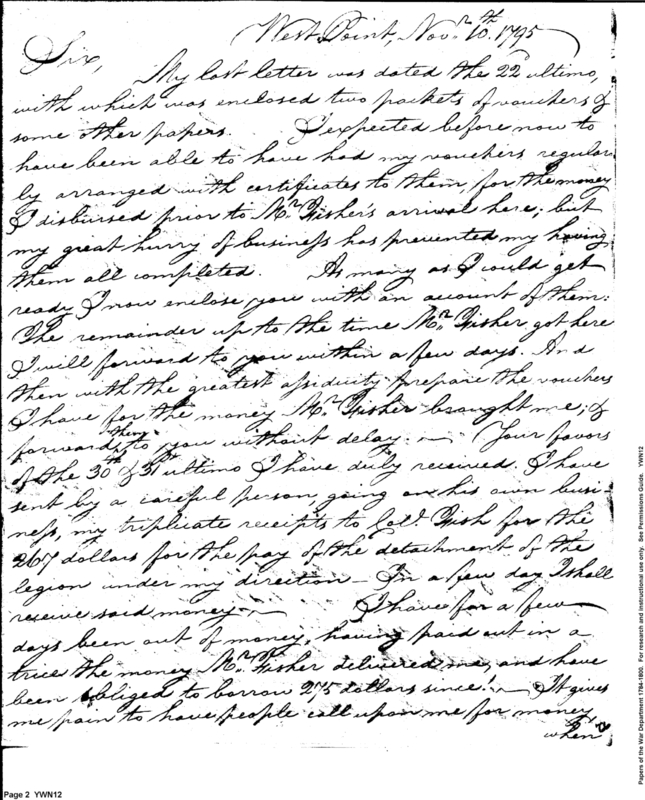 West Point, Novr. 10th. 1795
Sir,
My last letter was dated the 22 ultimo,
with which was enclosed two packets of vouchers &
some other papers. I expected before now to
have been able to have had my vouchers regular
ly arranged with certificates to them, for the money
I disbursed prior to Mr. Fisher's arrival here; but
my great hurry of business has prevented my having
them all completed. As many as I could get
ready I now enclose you with an account of them:
The remainder up to the time Mr. Fisher got here
I will forward to you within a few days. And
then with the greatest assiduity prepare the vouchers
I have for the money Mr. Fisher brought me; &
forward them to you without delay. — Your favors
of the 30th & 31st ultimo I have duly received. I have
sent by a careful person going on his own busi-
ness, my triplicate receipts to Col. Fish for the
267 dollars for the pay of the detachment of the
legion under my direction — In a few day I shall
receive said money — I have for a few
days been out of money, having paid out in a
trice the money Mr. Fisher delivered me, and have
been obliged to borrow 275 dollars since! — It gives
me pain to have people call upon me for money
when
Page 2 YWN12
Papers of the War Department 1784-1800. For research and instructional use only. See Permissions Guide. YWN12